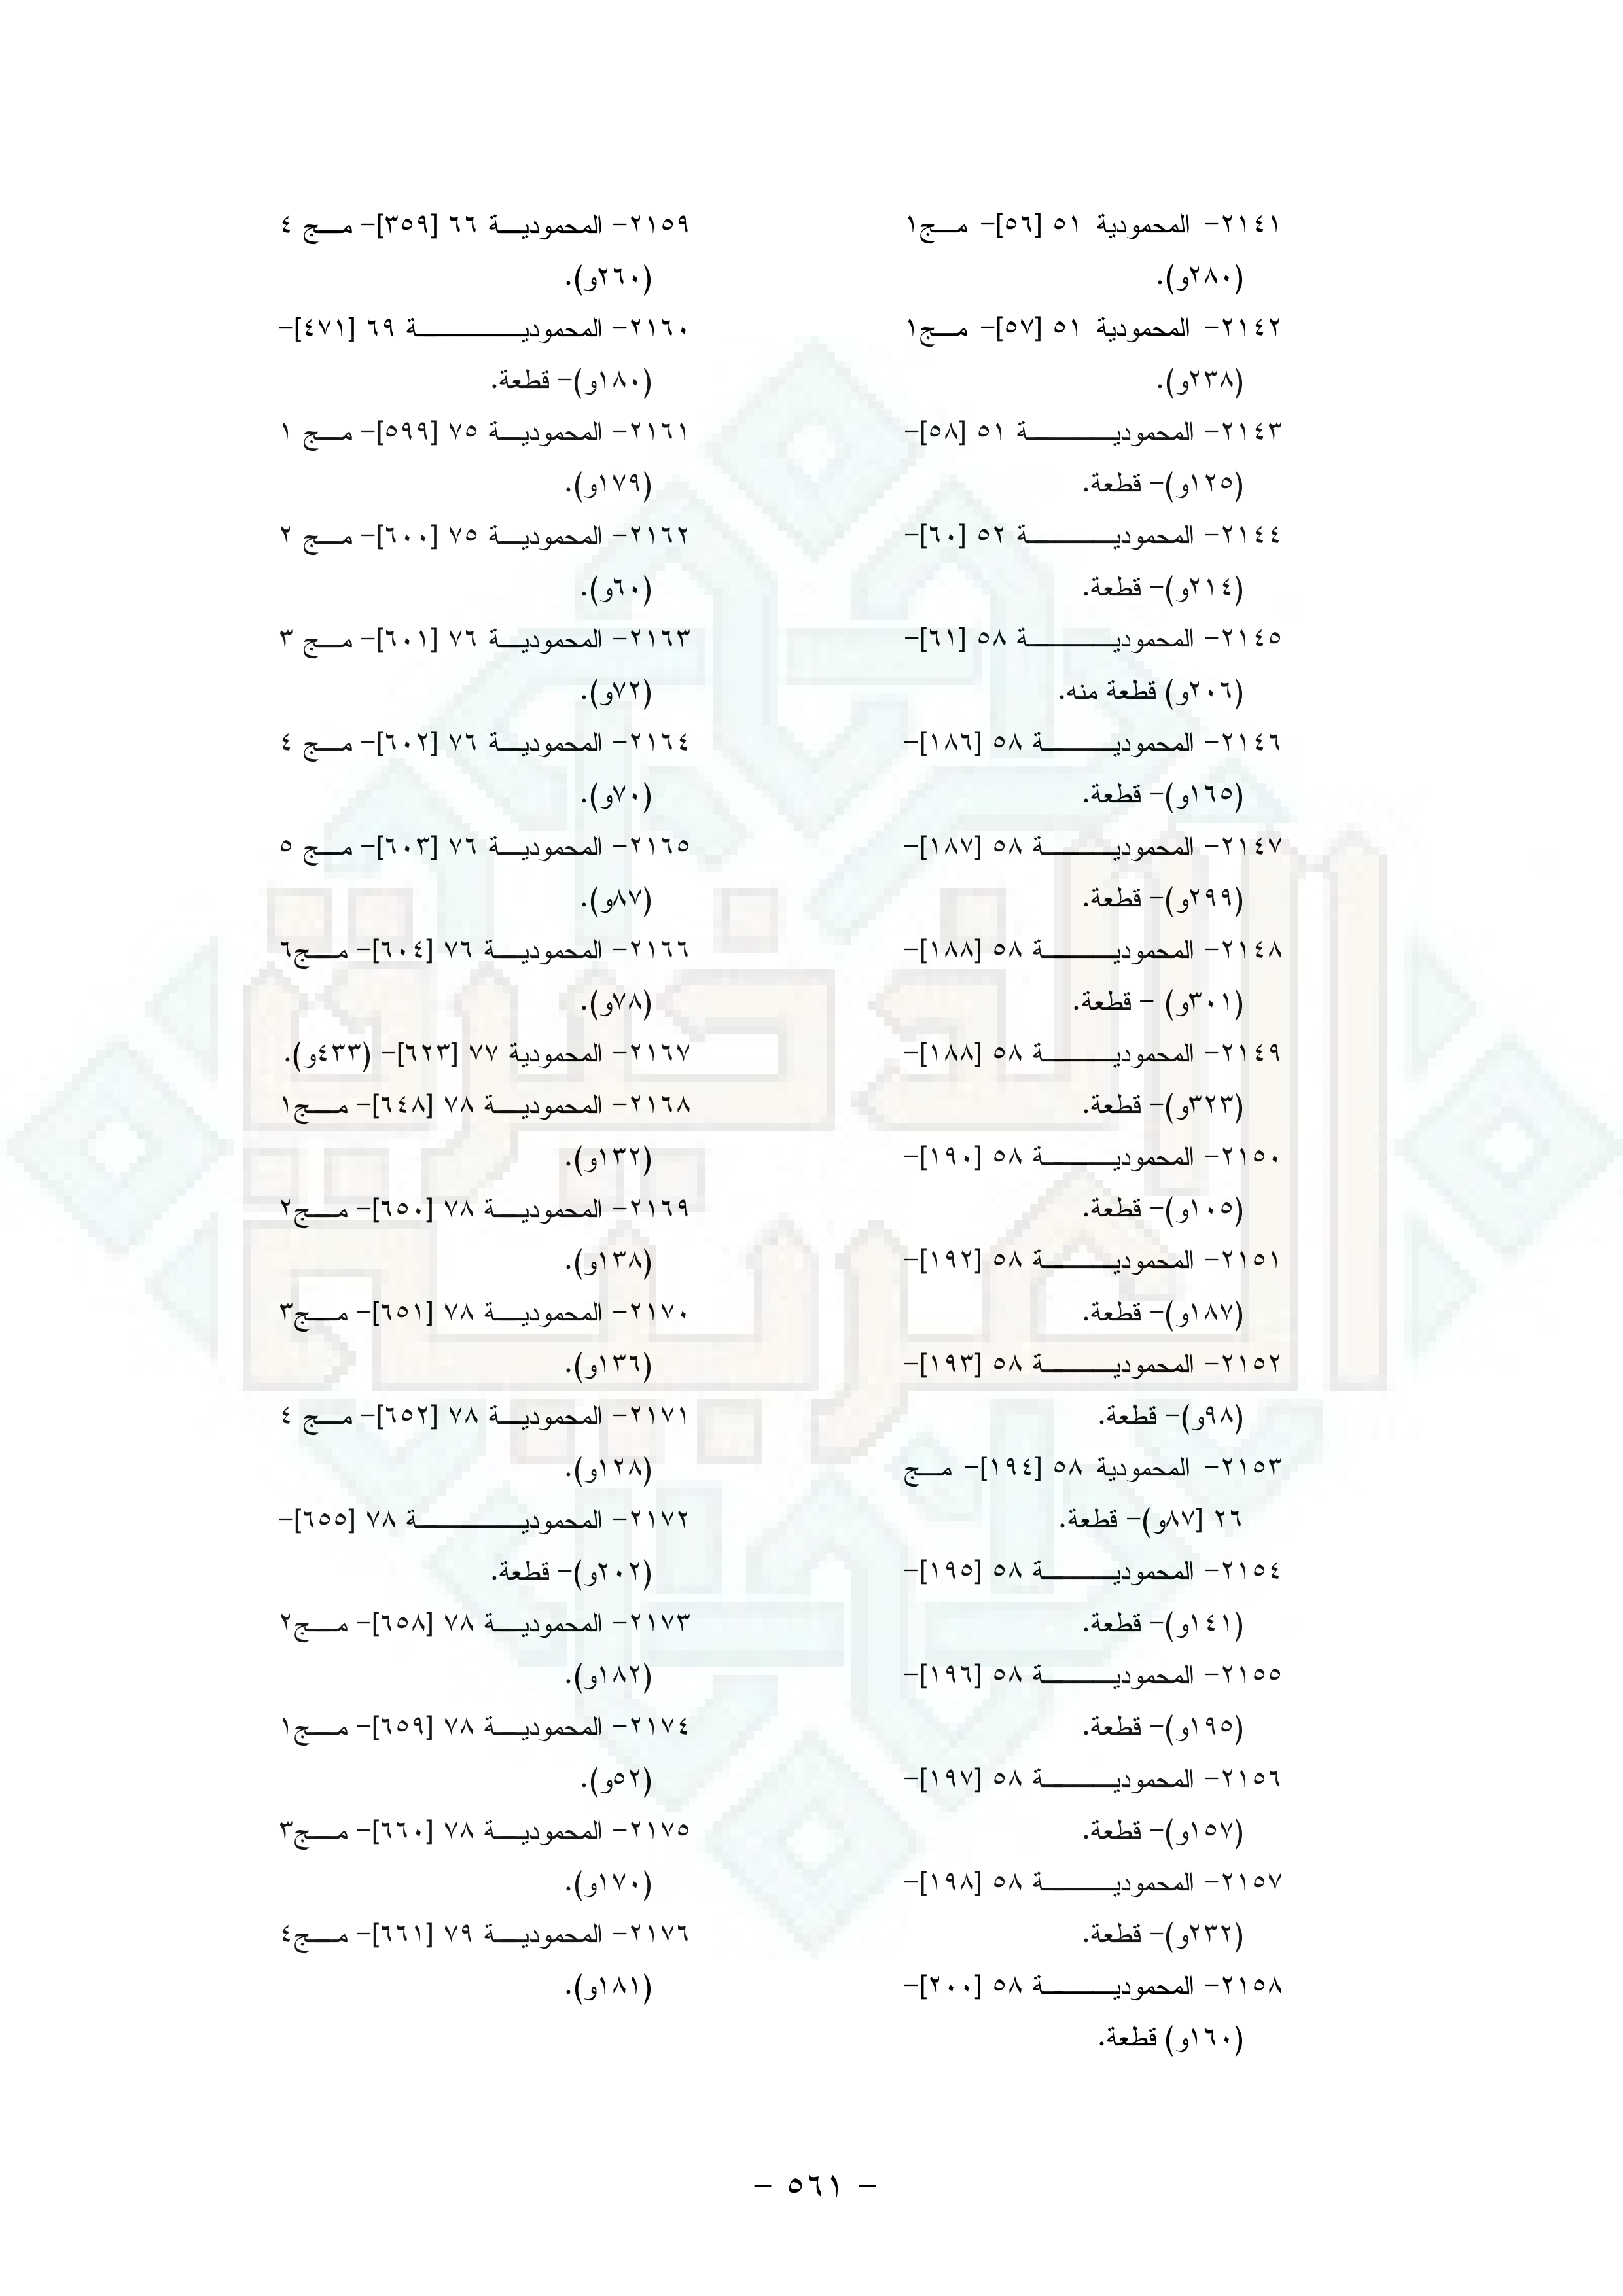 ٢١٤١- المحمودية ٥١ [٥٦]- مج١
(٢٨٠و).
٢١٤٢- المحمودية ٥١ [٥٧]- مج١
(٢٣٨و).
٢١٤٣- المحمودية ٥١ [٥٨]-
(١٢٥و)- قطعة.
٢١٤٤- المحمودية ٥٢ [٦٠]-
(٢١٤و)- قطعة.
٢١٤٥- المحمودية ٥٨ [٦١]-
(٢٠٦و) قطعة منه.
٢١٤٦- المحمودية ٥٨ [١٨٦]-
(١٦٥و)- قطعة.
٢١٤٧- المحمودية ٥٨ [١٨٧]-
(٢٩٩و)- قطعة.
٢١٤٨- المحمودية ٥٨ [١٨٨]-
(٣٠١و) - قطعة.
٢١٤٩- المحمودية ٥٨ [١٨٨]-
(٣٢٣و)- قطعة.
٢١٥٠- المحمودية ٥٨ [١٩٠]-
(١٠٥و)- قطعة.
٢١٥١- المحمودية ٥٨ [١٩٢]-
(١٨٧و)- قطعة.
٢١٥٢- المحمودية ٥٨ [١٩٣]-
(٩٨و)- قطعة.
٢١٥٣- المحمودية ٥٨ [١٩٤]- مج
٢٦ [٨٧و)- قطعة.
٢١٥٤- المحمودية ٥٨ [١٩٥]-
(١٤١و)- قطعة.
٢١٥٥- المحمودية ٥٨ [١٩٦]-
(١٩٥و)- قطعة.
٢١٥٦- المحمودية ٥٨ [١٩٧]-
(١٥٧و)- قطعة.
٢١٥٧- المحمودية ٥٨ [١٩٨]-
(٢٣٢و)- قطعة.
٢١٥٨- المحمودية ٥٨ [٢٠٠]-
(١٦٠و) قطعة.
٢١٥٩- المحمودية ٦٦ [٣٥٩]- مج ٤
(٢٦٠و).
٢١٦٠- المحمودية ٦٩ [٤٧١]-
(١٨٠و)- قطعة.
٢١٦١- المحمودية ٧٥ [٥٩٩]- مج ١
(١٧٩و).
٢١٦٢- المحمودية ٧٥ [٦٠٠]- مج ٢
(٦٠و).
٢١٦٣- المحمودية ٧٦ [٦٠١]- مج ٣
(٧٢و).
٢١٦٤- المحمودية ٧٦ [٦٠٢]- مج ٤
(٧٠و).
٢١٦٥- المحمودية ٧٦ [٦٠٣]- مج ٥
(٨٧و).
٢١٦٦- المحمودية ٧٦ [٦٠٤]- مج٦
(٧٨و).
٢١٦٧- المحمودية ٧٧ [٦٢٣]- (٤٣٣و).
٢١٦٨- المحمودية ٧٨ [٦٤٨]- مج١
(١٣٢و).
٢١٦٩- المحمودية ٧٨ [٦٥٠]- مج٢
(١٣٨و).
٢١٧٠- المحمودية ٧٨ [٦٥١]- مج٣
(١٣٦و).
٢١٧١- المحمودية ٧٨ [٦٥٢]- مج ٤
(١٢٨و).
٢١٧٢- المحمودية ٧٨ [٦٥٥]-
(٢٠٢و)- قطعة.
٢١٧٣- المحمودية ٧٨ [٦٥٨]- مج٢
(١٨٢و).
٢١٧٤- المحمودية ٧٨ [٦٥٩]- مج١
(٥٢و).
٢١٧٥- المحمودية ٧٨ [٦٦٠]- مج٣
(١٧٠و).
٢١٧٦- المحمودية ٧٩ [٦٦١]- مج٤
(١٨١و).
- ٥٦١ -
الذخيرة
العربية